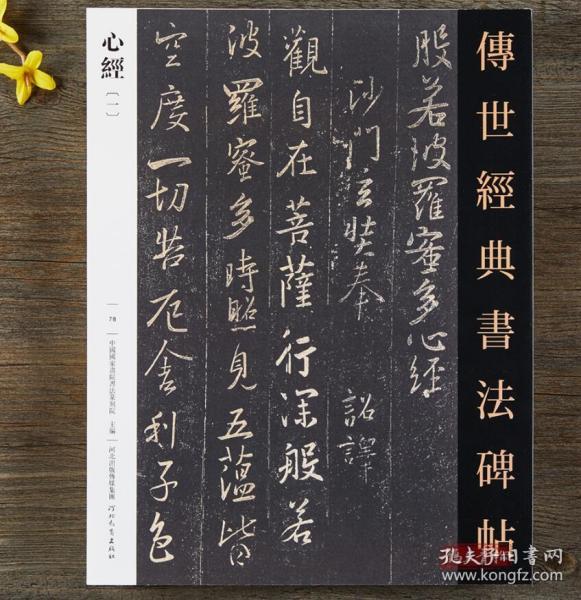 傳世經典書法碑帖
般若波羅蜜多心經
沙門玄奘奉 詔譯
觀自在菩薩行深般若
波羅蜜多時照見五蘊皆
空度一切苦厄舍利子色
心經〔一〕
78
中國國家畫院書法篆刻院 主編
河北出版傳媒集團
河北教育出版社
孔夫子旧书网
www.kongfz.com